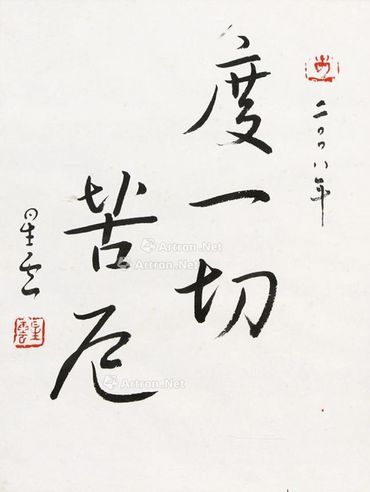 二〇〇八年
度一切
苦厄
星云
星雲
Artron.Net
Artron.Net
Artron.Net
Artron.Net